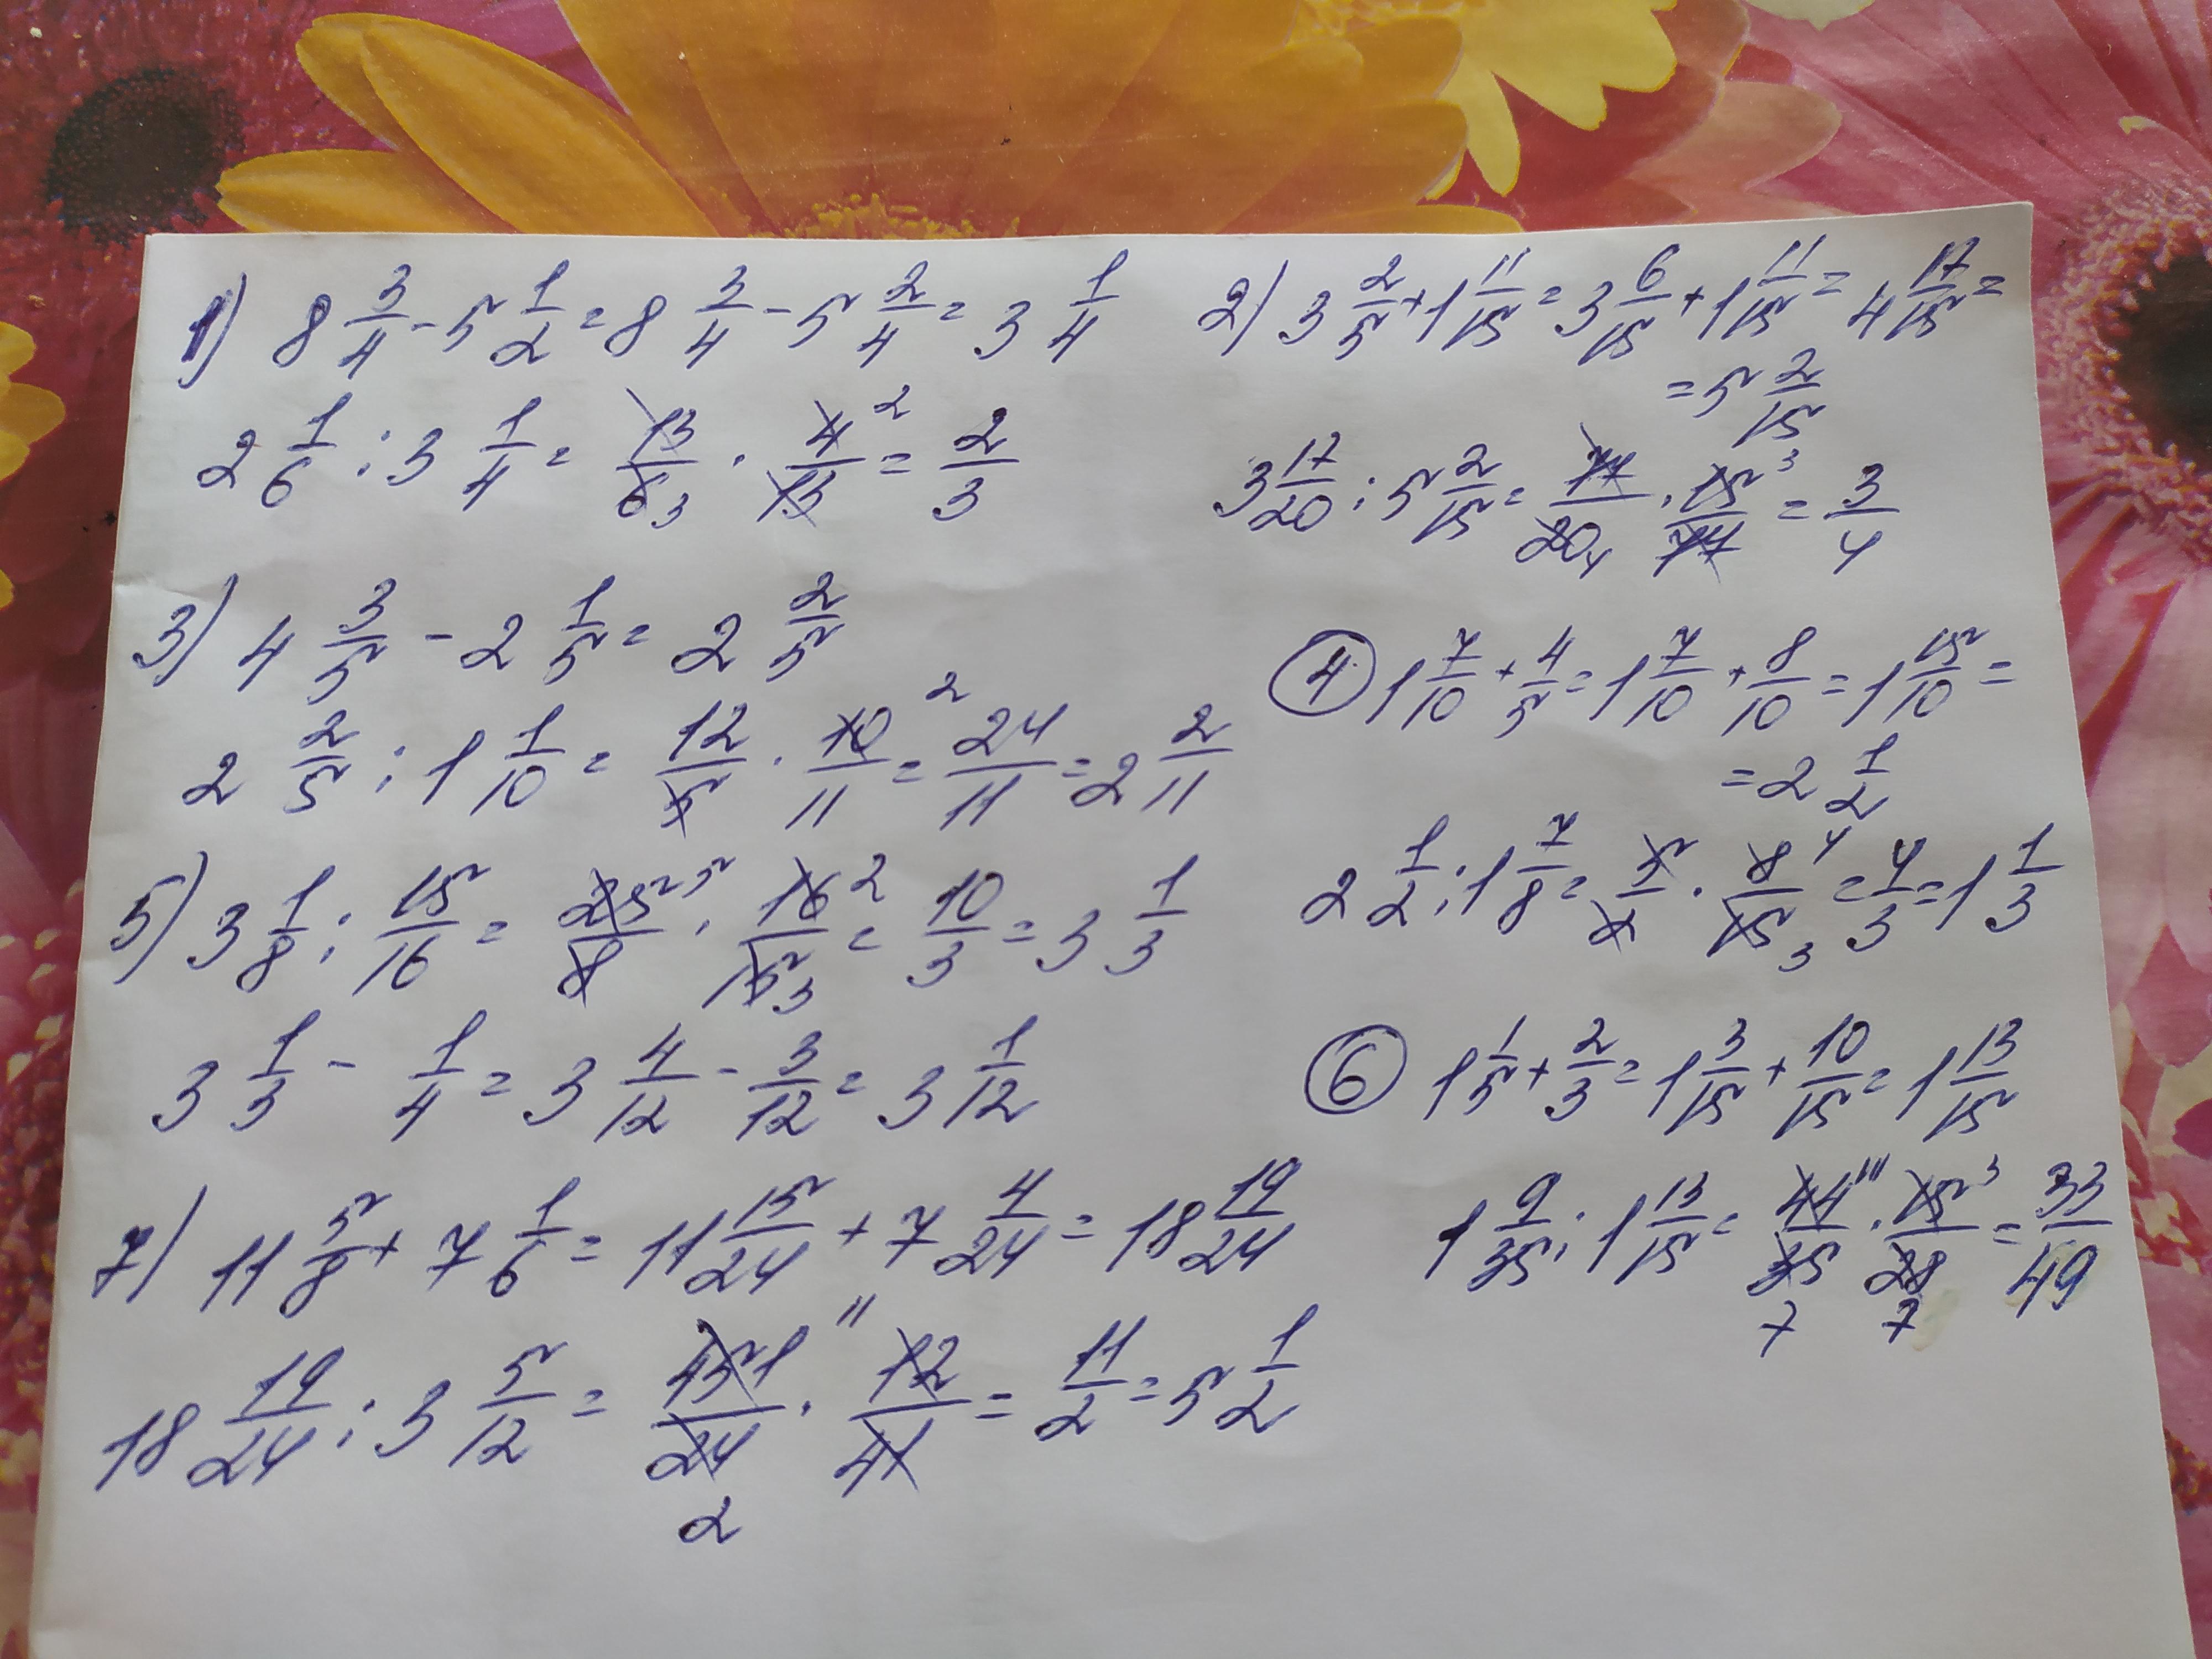 1) 8 3/4 - 5 1/2 = 8 3/4 - 5 2/4 = 3 1/4
2 1/6 : 3 1/4 = 13/6 3 · 4 2/13 = 2/3
2) 3 2/5 + 1 11/15 = 3 6/15 + 1 11/15 = 4 17/15 =
= 5 2/15
3 17/20 : 5 2/15 = 77/20 4 · 15 3/77 = 3/4
3) 4 3/5 - 2 1/5 = 2 2/5
2 2/5 : 1 1/10 = 12/5 · 10 2/11 = 24/11 = 2 2/11
4 1 7/10 + 4/5 = 1 7/10 + 8/10 = 1 15/10 =
= 2 1/2
2 1/2 : 1 7/8 = 5/2 · 8 4/15 3 = 4/3 = 1 1/3
5) 3 1/8 : 15/16 = 25 5/8 · 16 2/15 3 = 10/3 = 3 1/3
3 1/3 - 1/4 = 3 4/12 - 3/12 = 3 1/12
6 1 1/5 + 2/3 = 1 3/15 + 10/15 = 1 13/15
1 9/35 : 1 13/15 = 44 11/35 7 · 15 3/28 7 = 33/49
7) 11 5/8 + 7 1/6 = 11 15/24 + 7 4/24 = 18 19/24
18 19/24 : 3 5/12 = 451 11/24 2 · 12/41 = 11/2 = 5 1/2